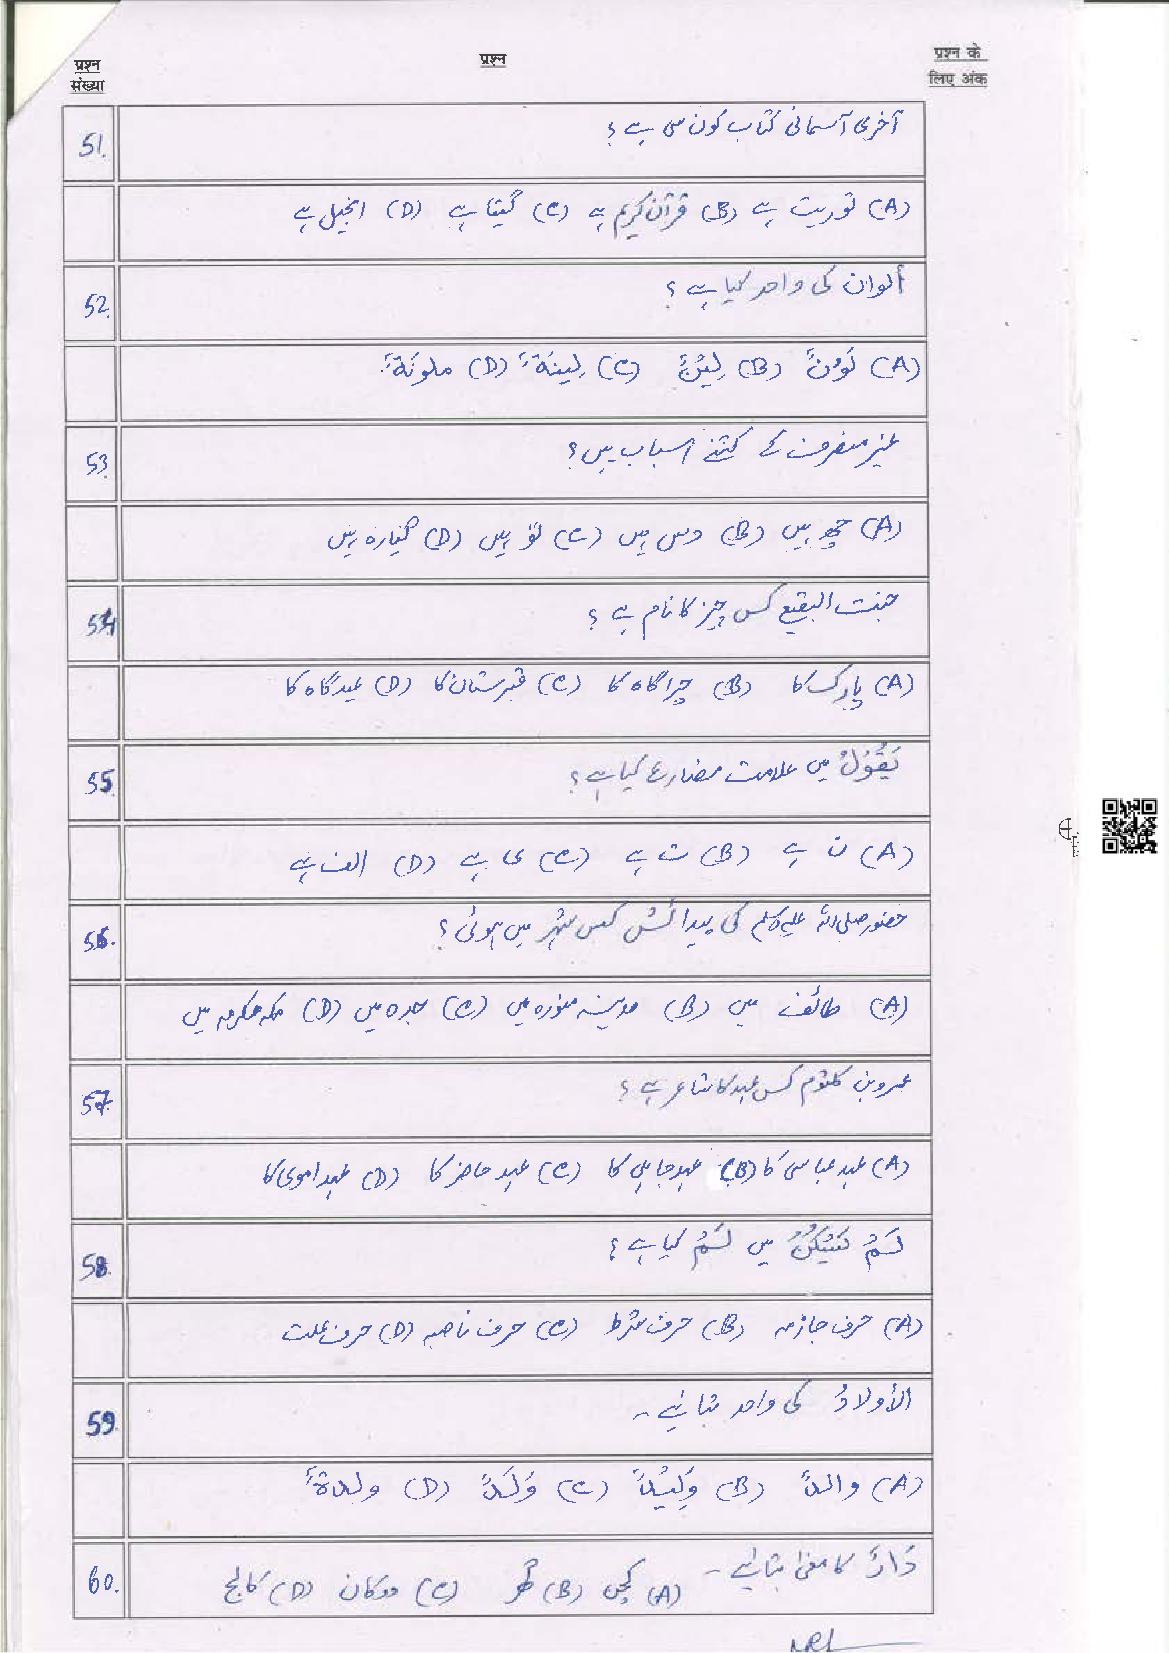 प्रश्न संख्या
प्रश्न
प्रश्न के लिए अंक
51.
آخری آسمانی کتاب کون سی ہے ؟
(A) توریت ہے (B) قرآن کریم ہے (C) گیتا ہے (D) انجیل ہے
52.
ألوان کی واحد کیا ہے ؟
(A) لَوْنٌ (B) لِيْنٌ (C) لِينَةٌ (D) ملونَةٌ
53.
غیر منصرف کے کتنے اسباب ہیں ؟
(A) چھ ہیں (B) دس ہیں (C) نو ہیں (D) گیارہ ہیں
54.
جنت البقیع کس چیز کا نام ہے ؟
(A) پارک کا (B) چراگاہ کا (C) قبرستان کا (D) عیدگاہ کا
55.
يَقُوْلُ میں علامت مضارع کیا ہے ؟
(A) ن ہے (B) ت ہے (C) ی ہے (D) الف ہے
56.
حضور صلی اللہ علیہ وسلم کی پیدائش کس شہر میں ہوئی ؟
(A) طائف میں (B) مدینہ منورہ میں (C) جدہ میں (D) مکہ مکرمہ میں
57.
عمرو بن کلثوم کس عہد کا شاعر ہے ؟
(A) عہد عباسی کا (B) عہد جاہلی کا (C) عہد حاضر کا (D) عہد اموی کا
58.
لَمْ میں لَمْ کیا ہے ؟
(A) حرف جازمہ (B) حرف شرط (C) حرف ناصبہ (D) حرف علت
59.
الأولادُ کی واحد بتائیے ۔
(A) والدٌ (B) وَلِيْدٌ (C) وَلَدٌ (D) ولدةٌ
60.
دَارٌ کا معنی بتائیے ۔ (A) (B) گھر (C) دوکان (D) کالج